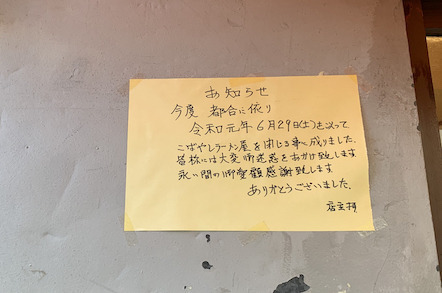 お知らせ
今度 都合に依り
令和元年6月29日(土)を以って
こばやしラーメン屋を閉じる事に成りました。
皆様には大変御迷惑をおかけ致します
永い間の御愛顧感謝致します
ありがとうございました。
店主拝